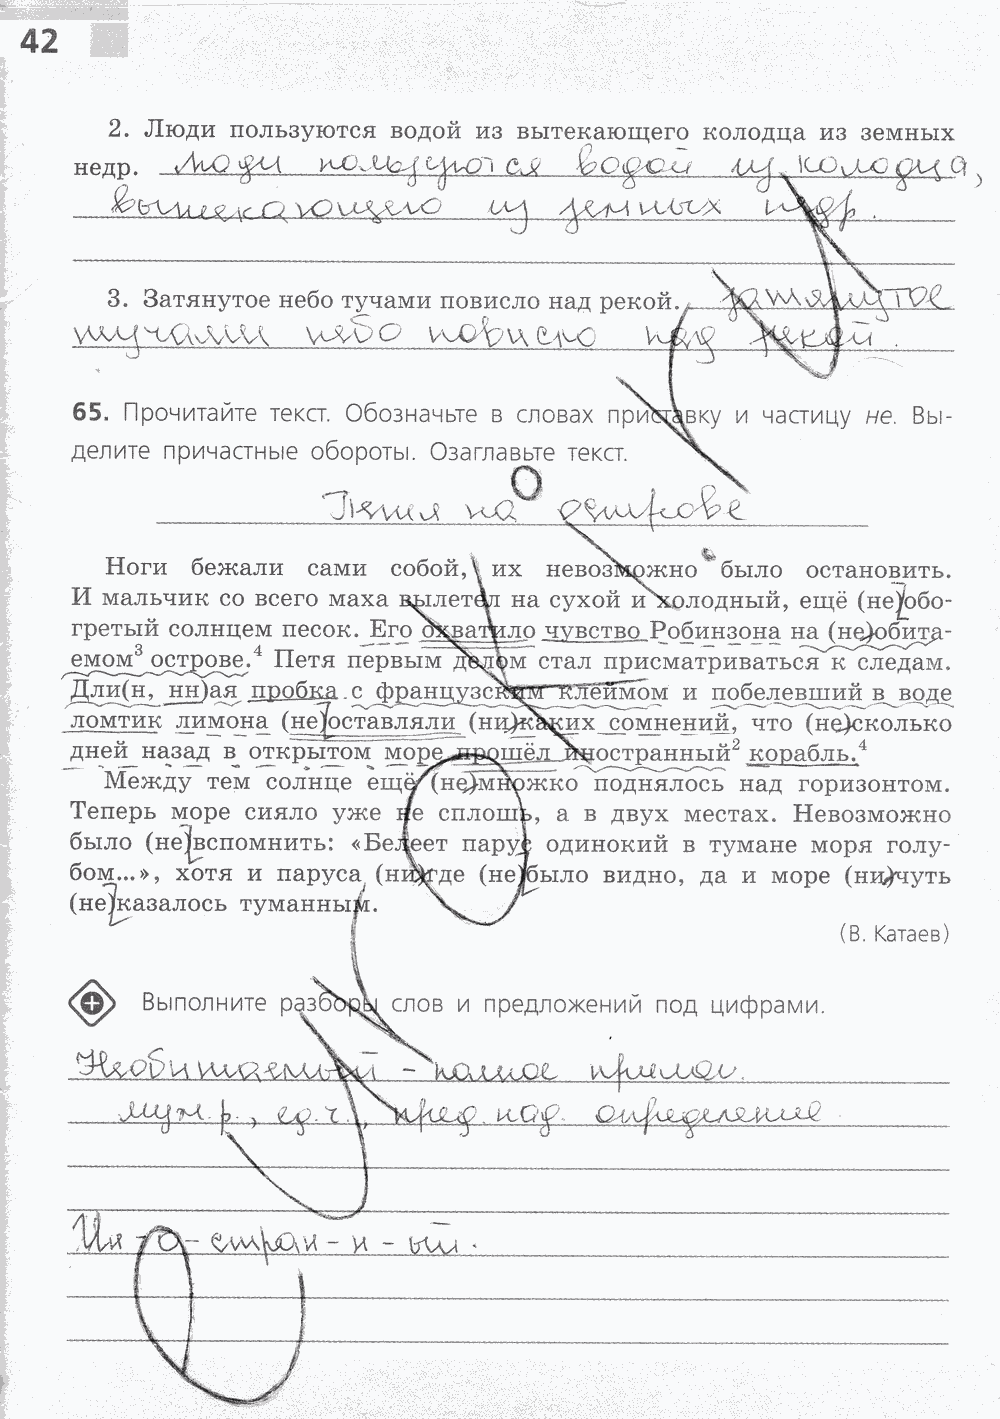 42
2. Люди пользуются водой из вытекающего колодца из земных
недр. Люди пользуются водой из колодца,
вытекающего из земных недр.
3. Затянутое небо тучами повисло над рекой. Затянутое
тучами небо повисло над рекой.
65. Прочитайте текст. Обозначьте в словах приставку и частицу не. Вы-
делите причастные обороты. Озаглавьте текст.
Петя на острове
Ноги бежали сами собой, их невозможно было остановить.
И мальчик со всего маха вылетел на сухой и холодный, ещё (не)обо-
гретый солнцем песок. Его охватило чувство Робинзона на (не)обита-
емом³ острове.⁴ Петя первым делом стал присматриваться к следам.
Дли(н, нн)ая пробка с французским клеймом и побелевший в воде
ломтик лимона (не)оставляли (ни)каких сомнений, что (не)сколько
дней назад в открытом море прошёл иностранный² корабль.⁴
Между тем солнце ещё (не)множко поднялось над горизонтом.
Теперь море сияло уже не сплошь, а в двух местах. Невозможно
было (не)вспомнить: «Белеет парус одинокий в тумане моря голу-
бом...», хотя и паруса (ни)где (не)было видно, да и море (ни)чуть
(не)казалось туманным.
(В. Катаев)
Выполните разборы слов и предложений под цифрами.
Необитаемый – полное прилаг.
муж. р., ед. ч., пред. пад. определение
Ин-о-стран-н-ый.